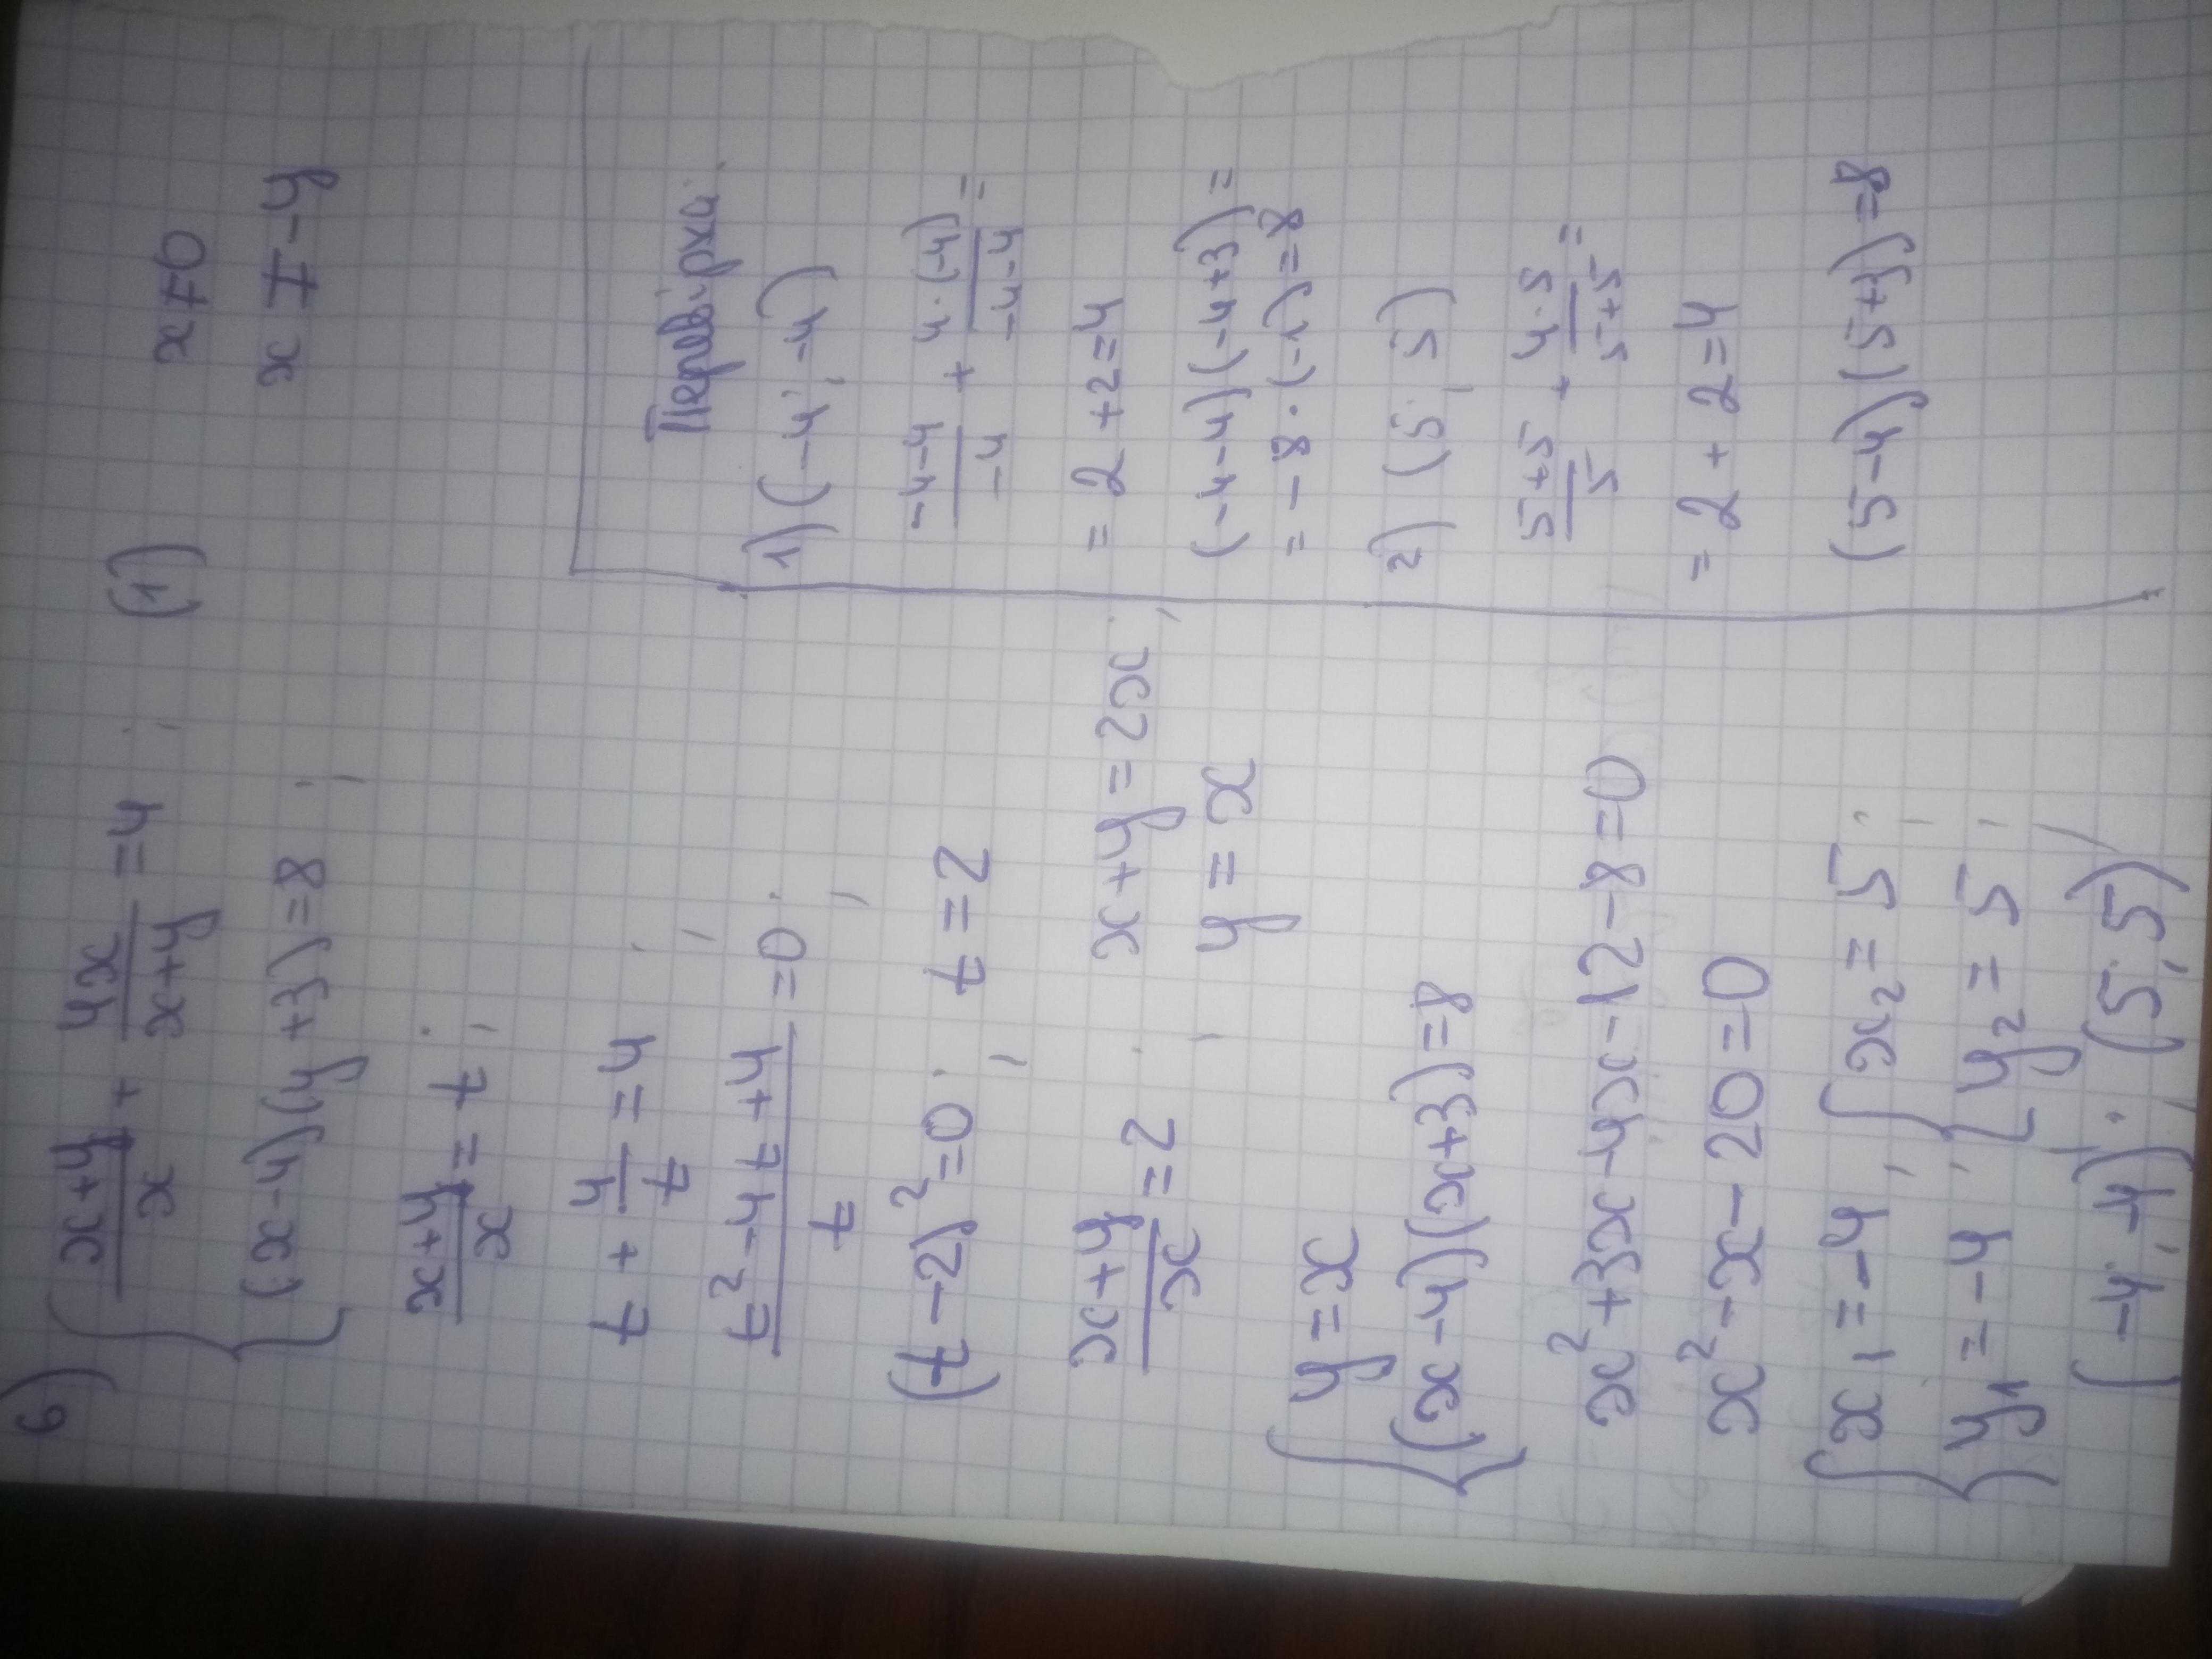 6) { (x+y)/x + 4x/(x+y) = 4; (1) x≠0
(x-4)(y+3)=8; x ≠ -y
(x+y)/x = t;
t + 4/t = 4;
(t²-4t+4)/t =0;
(t-2)²=0; t=2
(x+y)/x =2; x+y=2x;
y=x
{ y=x
(x-4)(x+3)=8
x²+3x-4x-12-8=0
x²-x-20=0
{ x₁=-4, { x₂=5;
y₁=-4, y₂=5;
(-4;-4); (5;5)
Перевірка.
1) (-4; -4)
(-4-4)/(-4) + (4·(-4))/(-4-4) =
= 2+2=4
(-4-4)(-4+3)=
= -8·(-1)=8
2) (5; 5)
(5+5)/5 + (4·5)/(5+5) =
= 2+2=4
(5-4)(5+3)=8